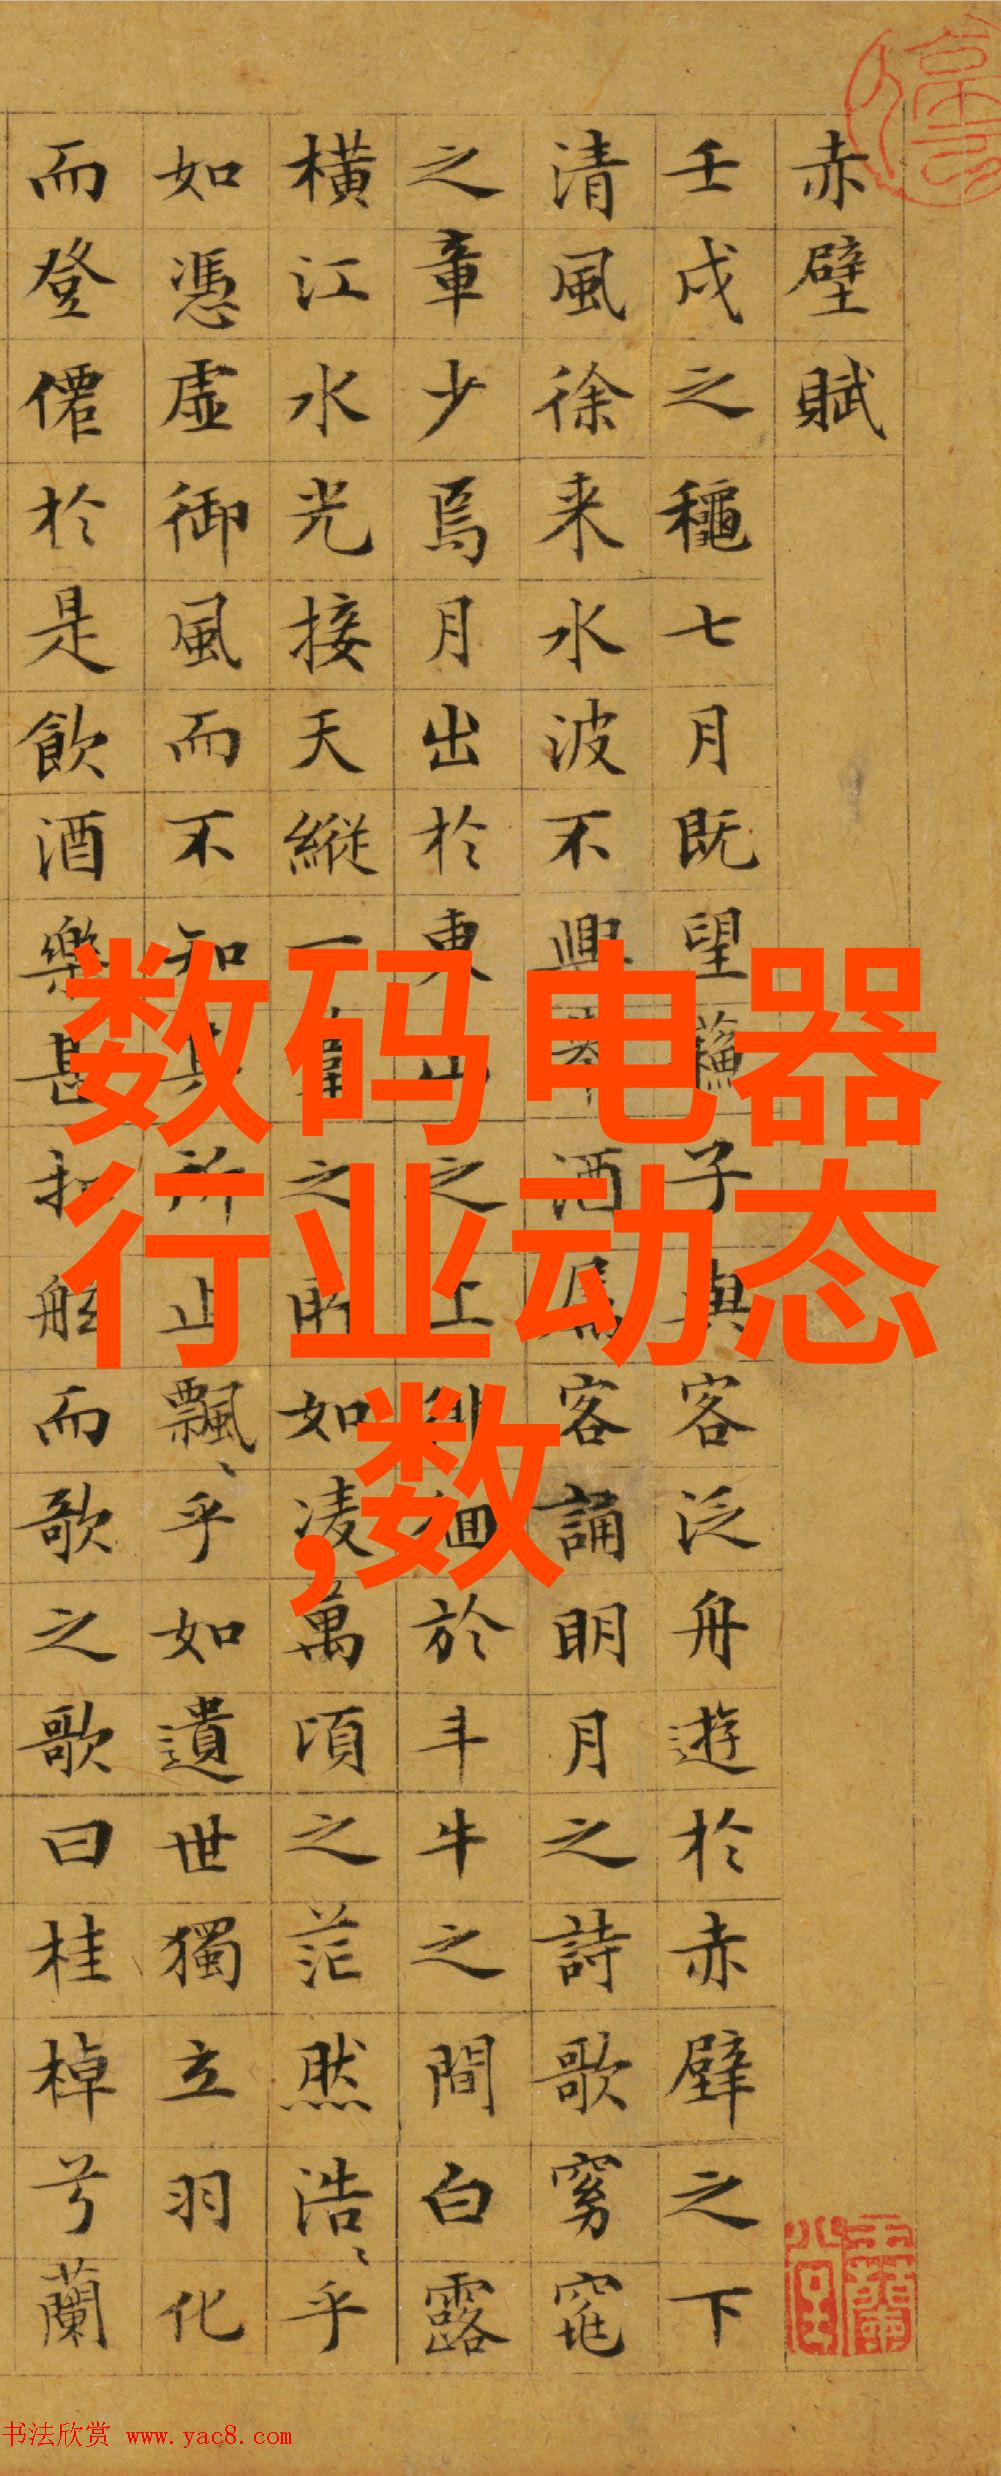 赤壁賦
壬戌之穐七月既望蘓子與客泛舟遊於赤壁之下
清風徐来水波不興舉酒屬客誦明月之詩歌窈窕
之章少焉月出於東山之上徘徊於斗牛之間白露
橫江水光接天縱一葦之所如凌萬頃之茫然浩、乎
如憑虛御風而不知其所止飄、乎如遺世獨立羽化
而登僊於是飲酒樂甚扣舷而歌之歌曰桂棹兮蘭
数码电器
行业动态
,数
书法欣赏 www.yac8.com